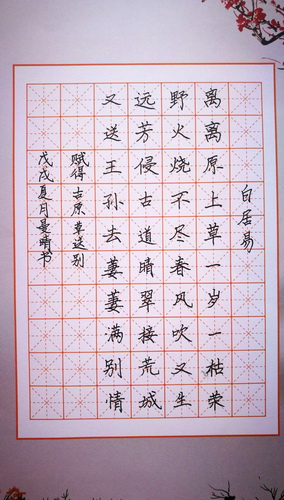 白居易
离离原上草一岁一枯荣
野火烧不尽春风吹又生
远芳侵古道晴翠接荒城
又送王孙去萋萋满别情
赋得古原草送别
戊戌夏月曼晴书